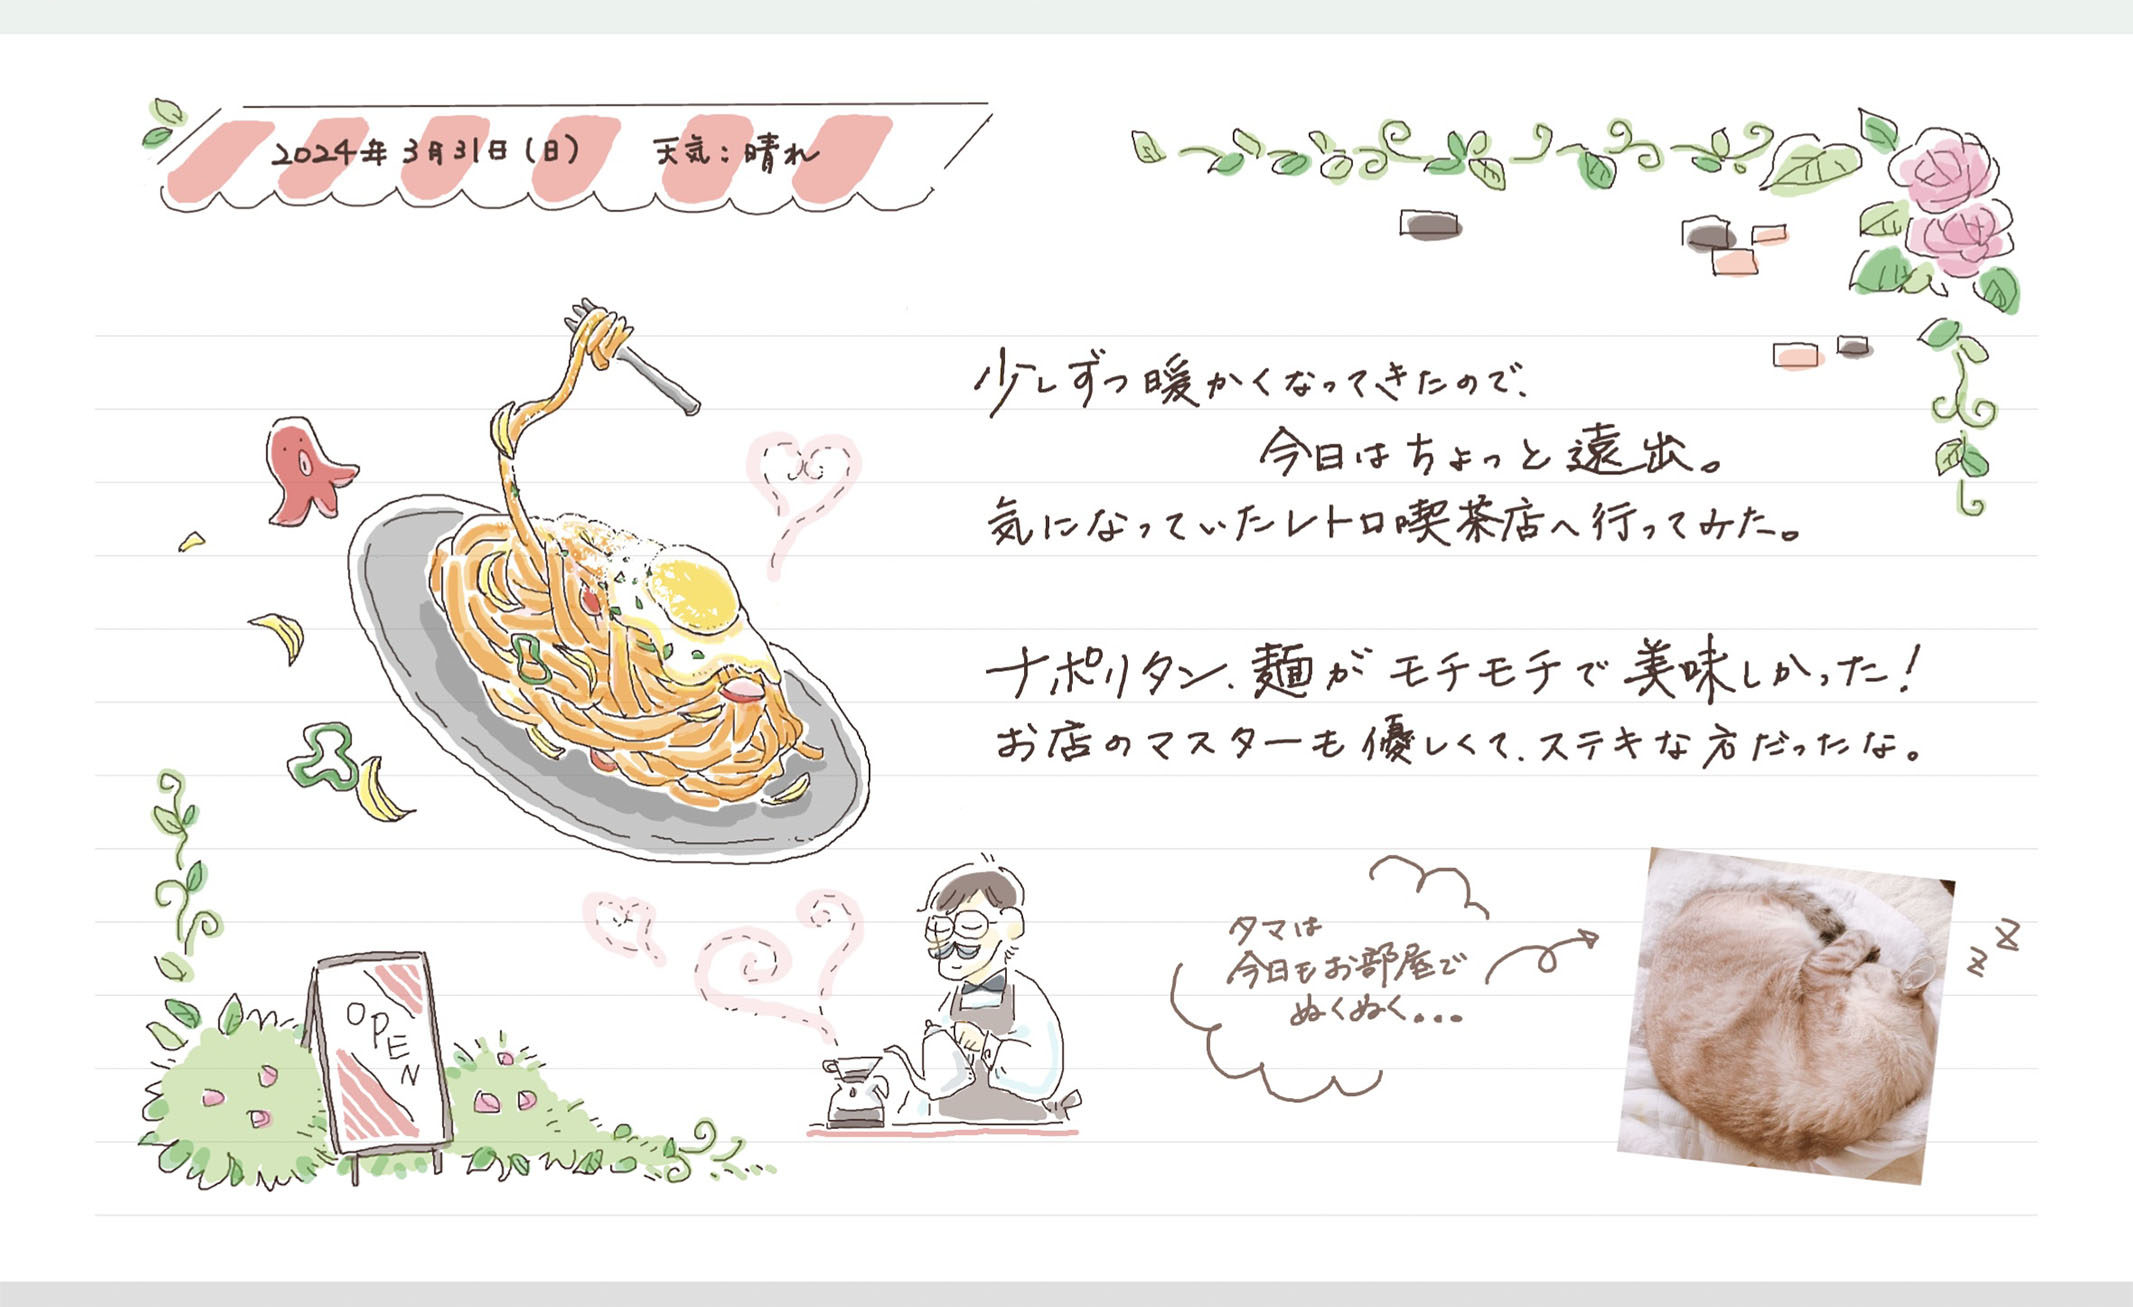 2024年3月31日(日) 天気:晴れ
少しずつ暖かくなってきたので、
今日はちょっと遠出。
気になっていたレトロ喫茶店へ行ってみた。
ナポリタン、麺がモチモチで美味しかった!
お店のマスターも優しくて、ステキな方だったな。
タマは
今日もお部屋で
ぬくぬく...
z
z
OPEN